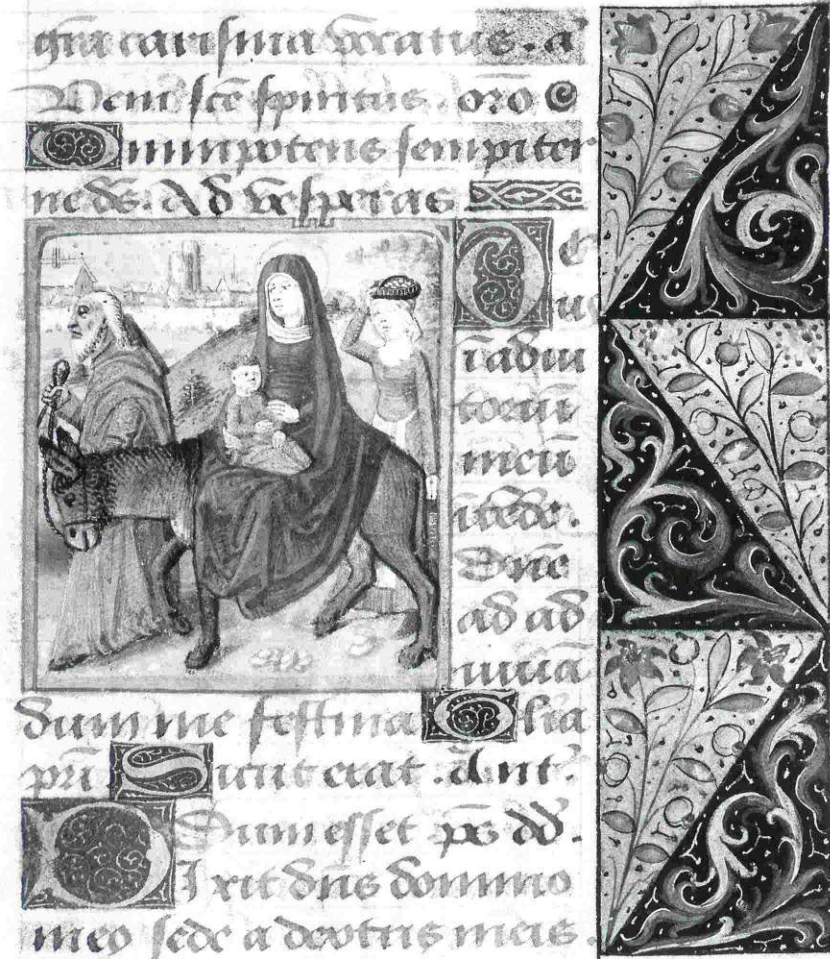 gr̄a carisma vocatus. a
Veni sc̄e spiritus. or̄o
Omnipotens sempiter
ne d̄s. Ad vesperas
Deus
ī adiu
toriū
meū
ītēde.
Dn̄e
ad ad
iuuā
dum me festina Glia
pri Sicut erat. ānt.
Dum esset. p̄s dd̄.
Dixit dn̄s domino
meo sede a dextris meis.